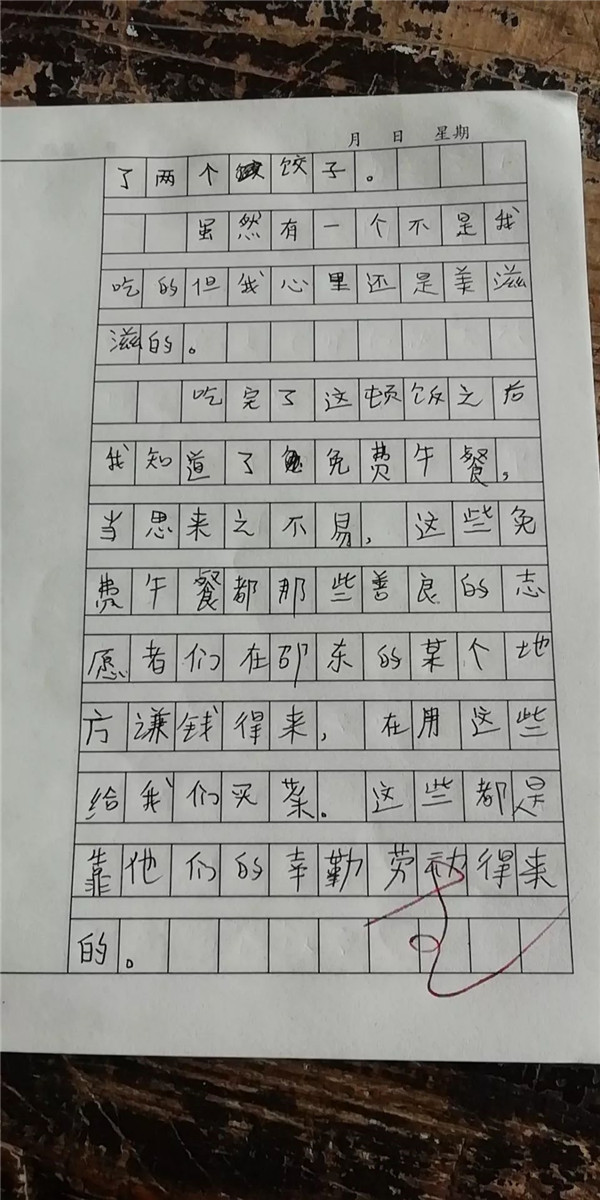 月 日 星期
了两个饺子。
虽然有一个不是我
吃的但我心里还是美滋
滋的。
吃完了这顿饭之后
我知道了免费午餐，
当思来之不易，这些免
费午餐都那些善良的志
愿者们在邵东的某个地
方谦钱得来，在用这些
给我们买菜。这些都是
靠他们的幸勤劳动得来
的。